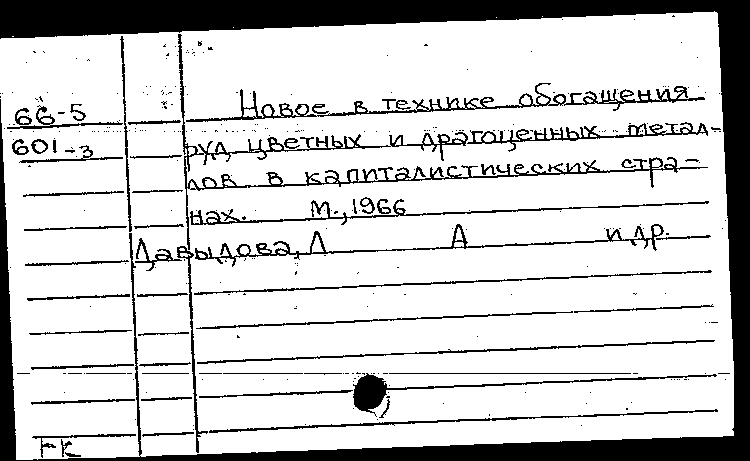 66-5 Новое в технике обогащения
601-3 руд цветных и драгоценных метал-
лов в капиталистических стра-
нах. М., 1966
Давыдова, Л А и др.
ГК